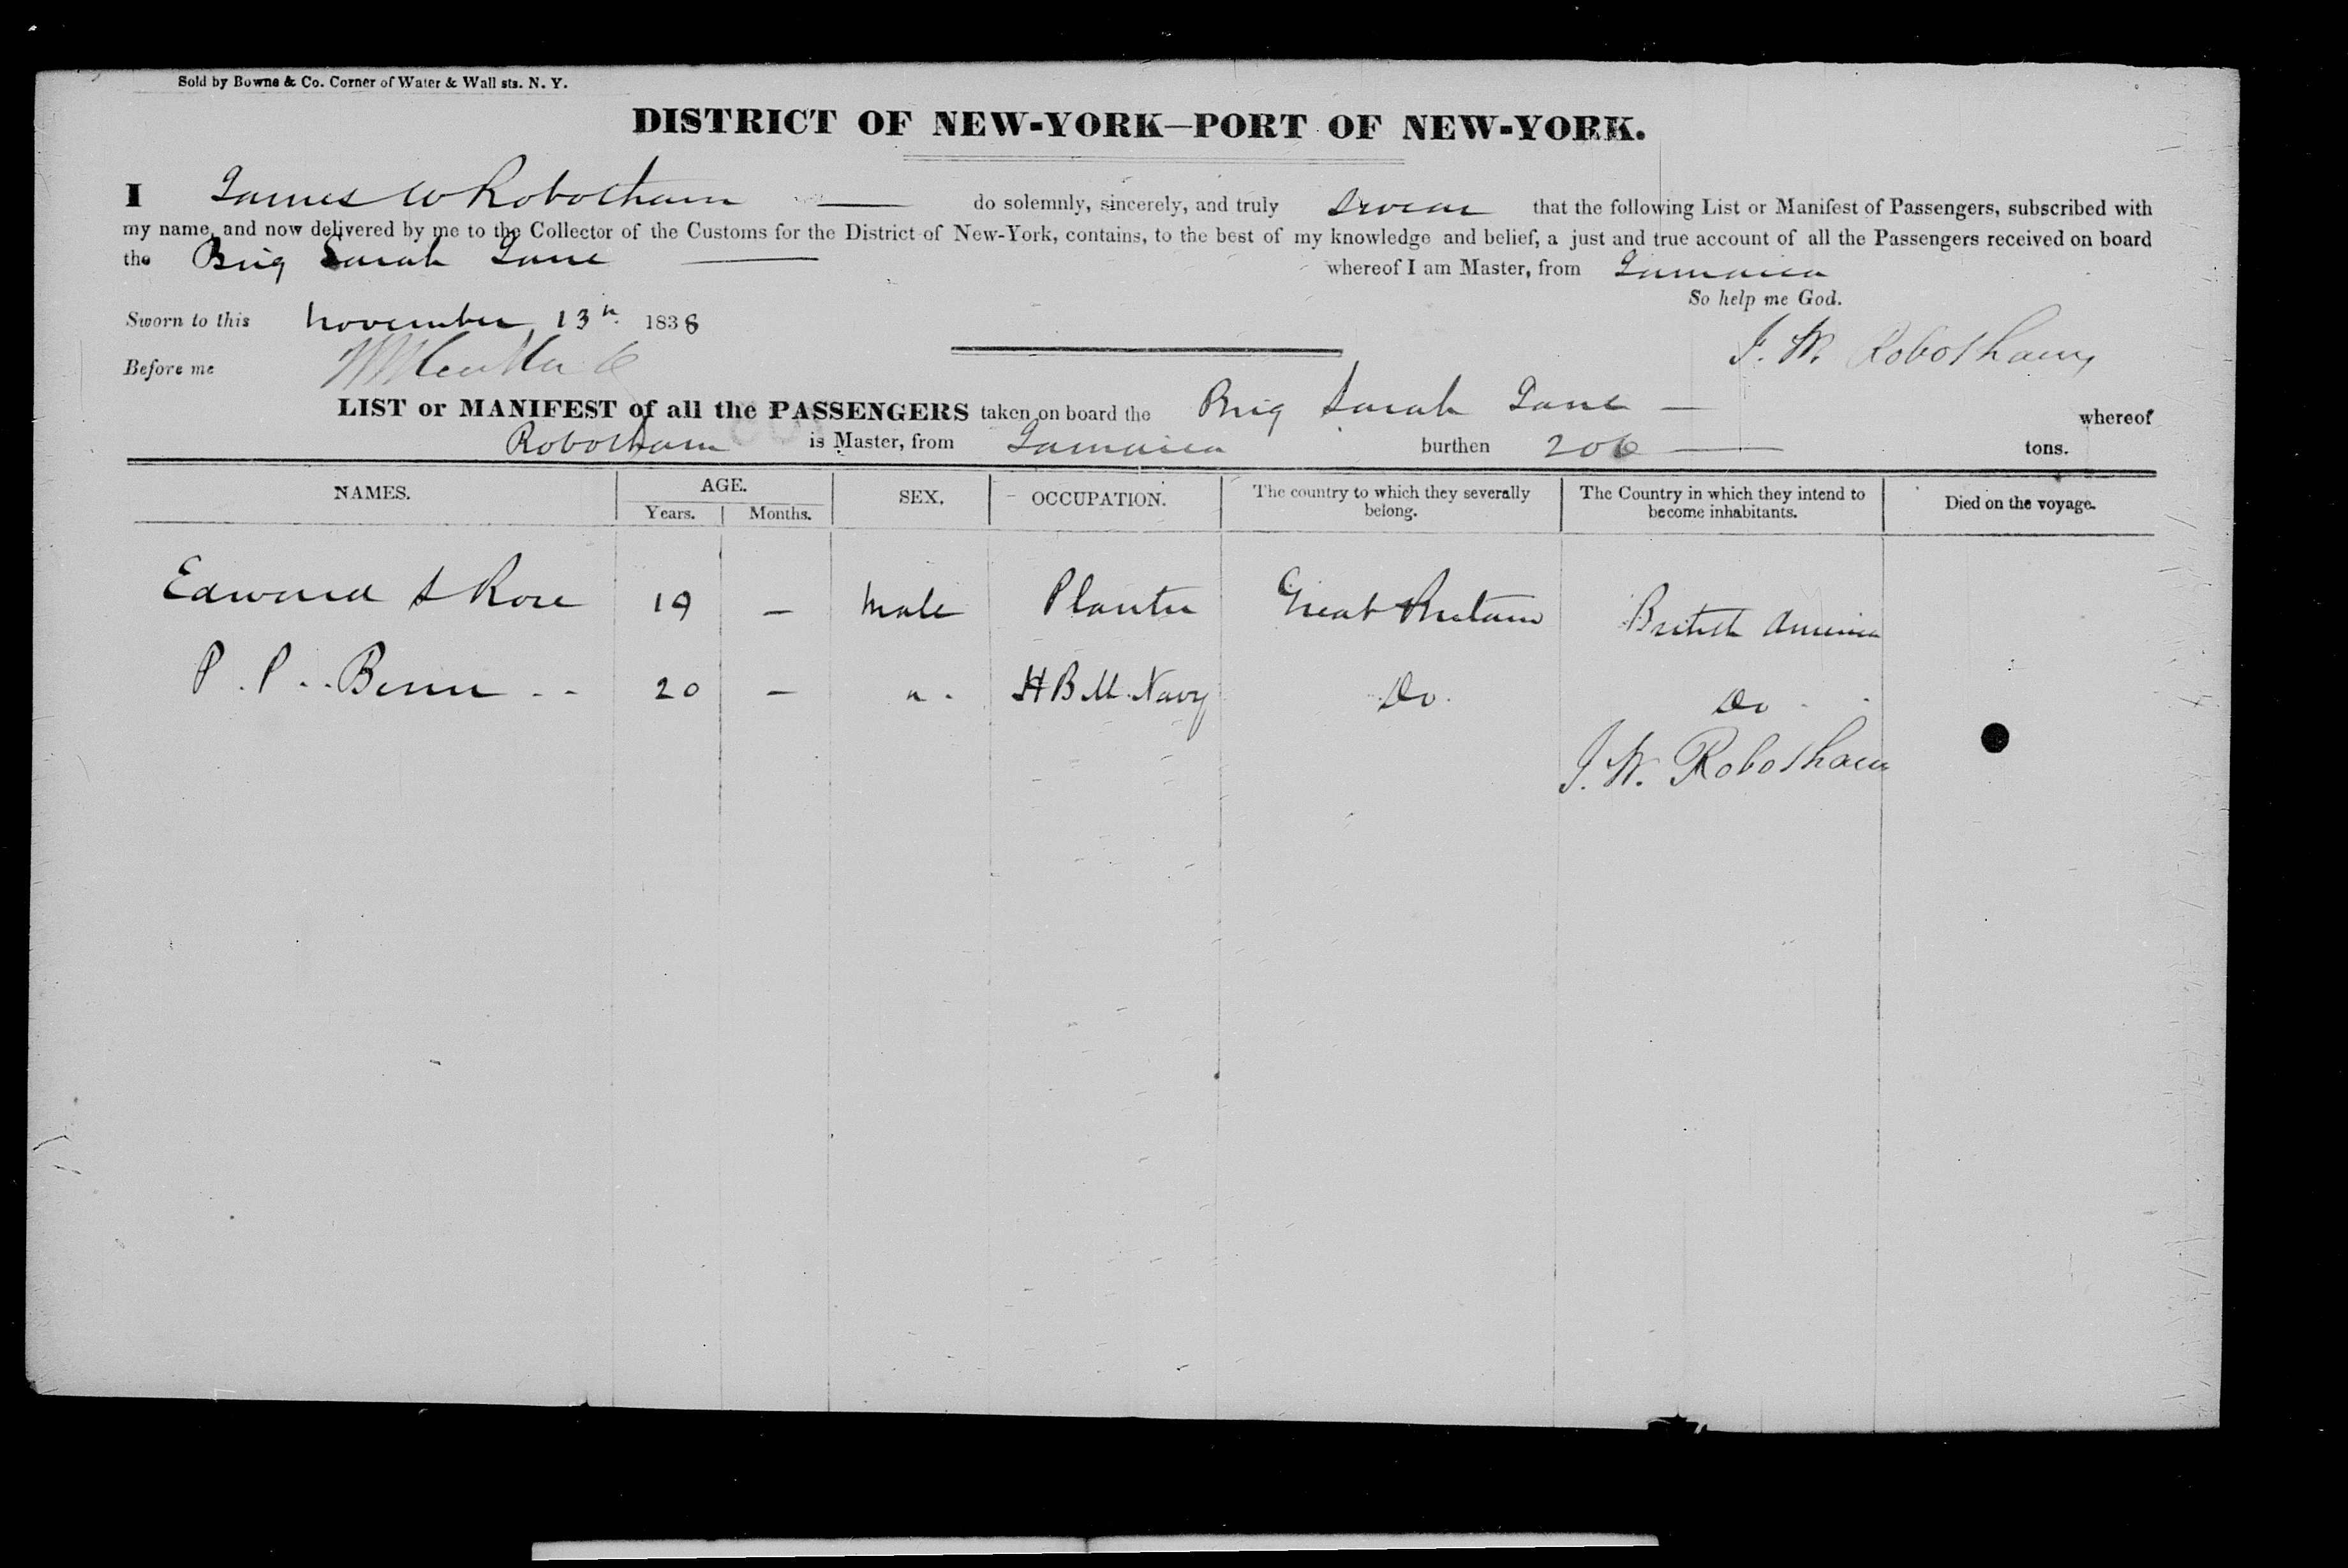 Sold by Bowne & Co. Corner of Water & Wall sts. N. Y.
DISTRICT OF NEW-YORK—PORT OF NEW-YORK.
I James W Robotham — do solemnly, sincerely, and truly swear that the following List or Manifest of Passengers, subscribed with
my name, and now delivered by me to the Collector of the Customs for the District of New-York, contains, to the best of my knowledge and belief, a just and true account of all the Passengers received on board
the Brig Sarah Jane — whereof I am Master, from Jamaica
So help me God.
Sworn to this November 13th 1838
J. W. Robotham
Before me
LIST or MANIFEST of all the PASSENGERS taken on board the Brig Sarah Jane — whereof
Robotham is Master, from Jamaica burthen 206 — tons.
NAMES. AGE. SEX. OCCUPATION. The country to which they severally belong. The Country in which they intend to become inhabitants. Died on the voyage.
Years. Months.
Edward S Rose 19 — Male Planter Great Britain British America
P. P. 20 — " H B M. Navy Do. Do
J. W. Robotham